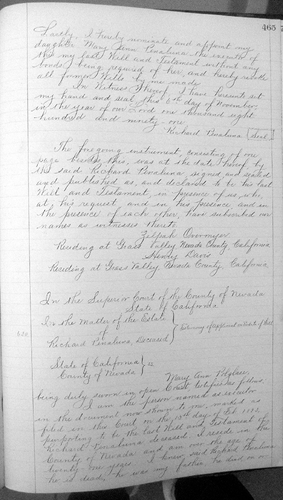 465
Lastly, I hereby nominate and appoint my
daughter Mary Ann Penaluna the executrix of
this my last Will and Testament without any
bonds being required of her, and hereby revoke
all former Wills by me made.
In Witness Whereof, I have hereunto set
my hand and seal this 2nd day of November,
in the year of our Lord one thousand eight
hundred and ninety-one.
Richard Penaluna (Seal)
The foregoing instrument, consisting of one
page besides this, was at the date thereof by
the said Richard Penaluna signed and sealed
and published as, and declared to be his last
Will and Testament, in presence of us, who,
at his request, and in his presence and in
the presence of each other, have subscribed our
names as witnesses thereto.
Residing at Grass Valley, Nevada County, California
Residing at Grass Valley, Nevada County, California
In the Superior Court of the County of Nevada
State of California
In the Matter of the Estate
of
Richard Penaluna, Deceased
State of California
County of Nevada
Mary Ann
being duly sworn in open Court, testifies as follows:
I am the person named as executrix
in the document now shown to me, marked as
filed in this Court on the day of
purporting to be the last Will and Testament of
Richard Penaluna deceased. I reside in the
County of Nevada and am over the age of
twenty one years. I knew said Richard Penaluna
he is dead, he was my father he died on or